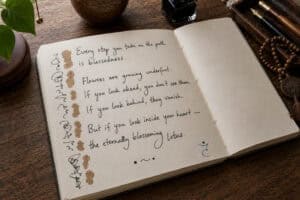 Every step you take on the path
is blessedness.
Flowers are growing underfoot.
If you look ahead, you don't see them.
If you look behind, they vanish.
But if you look inside your heart —
the eternally blossoming lotus.